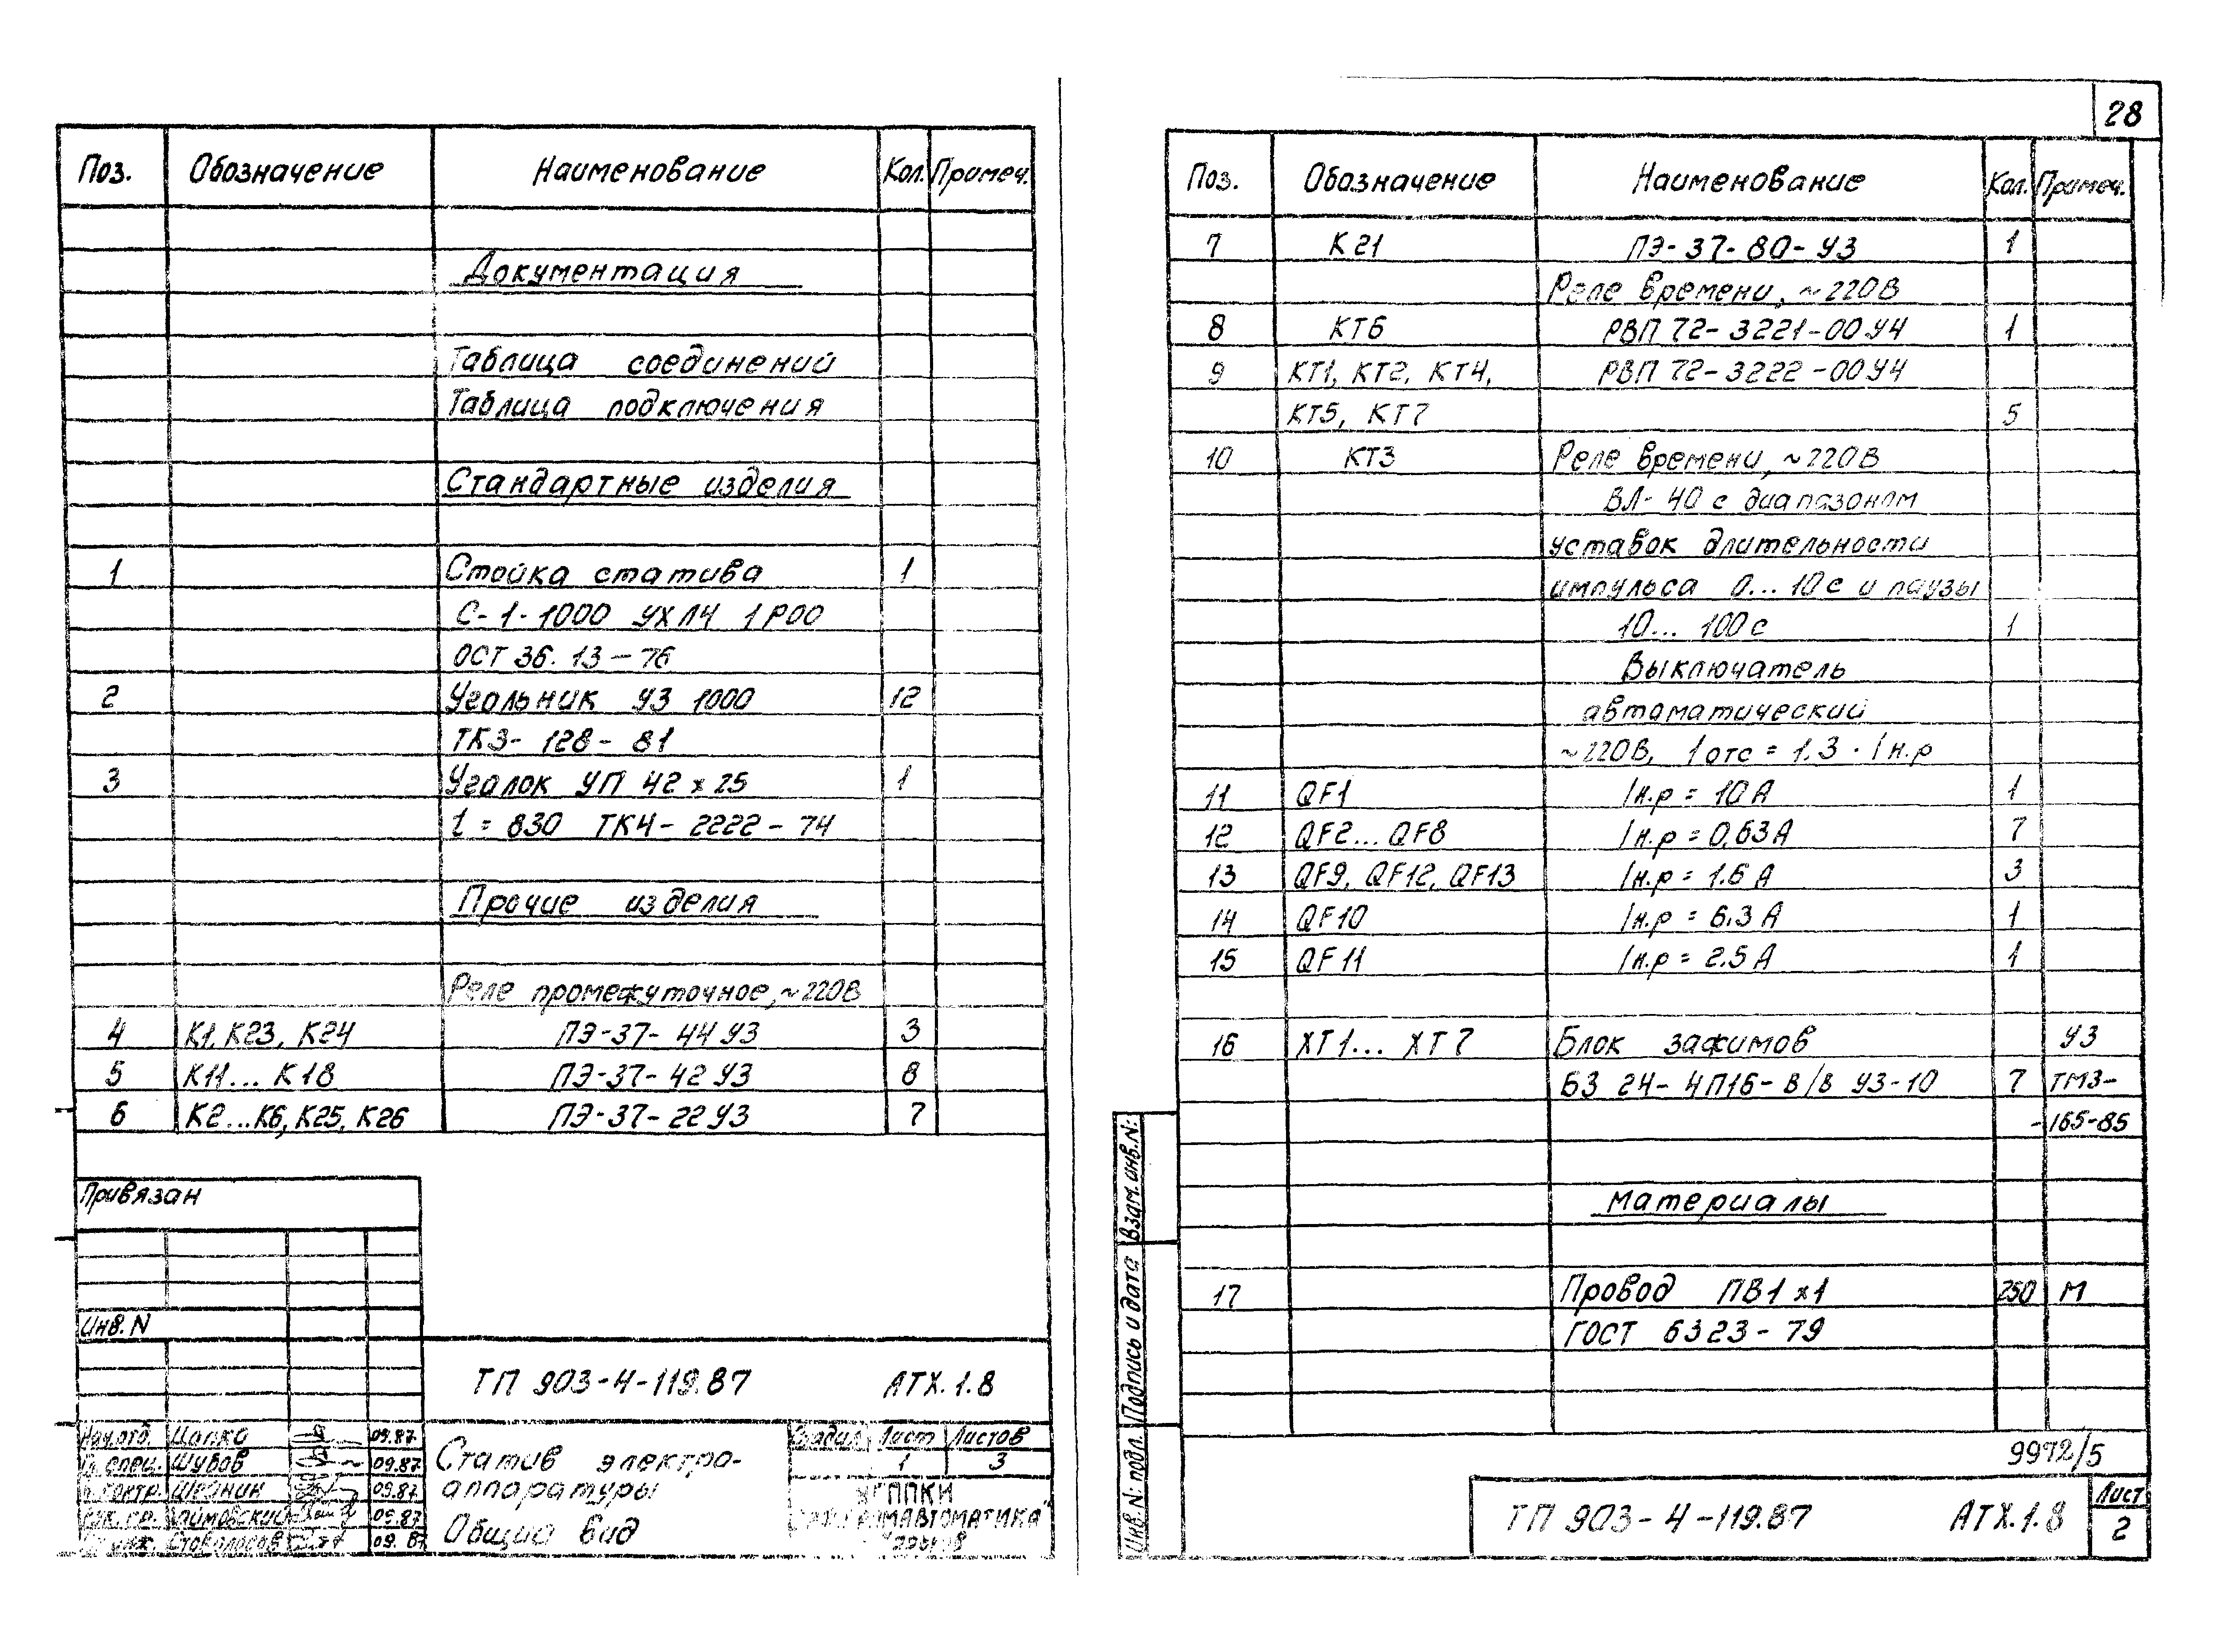 Поз. Обозначение Наименование Кол. Примеч.
Документация
Таблица соединений
Таблица подключения
Стандартные изделия
1 Стойка статива 1
С-1-1000 УХЛ4 1Р00
ОСТ 36.13-76
2 Угольник УЗ 1000 12
ТКЗ-128-81
3 Уголок УП 42х25 1
l = 830 ТК4-2222-74
Прочие изделия
Реле промежуточное, ~220В
4 К1, К23, К24 ПЭ-37-44 У3 3
5 К11...К18 ПЭ-37-42 У3 8
6 К2...К6, К25, К26 ПЭ-37-22 У3 7
Привязан
Инв. N
ТП 903-4-119.87 АТХ.1.8
Нач.отд. Цапко 09.87
спец. Шубов 09.87
контр. Шейнин 09.87
09.87
инж. 09.87
Статив электро-
аппаратуры
Общий вид
Стадия Лист Листов
1 3
28
Поз. Обозначение Наименование Кол. Примеч.
7 К21 ПЭ-37-80-У3 1
Реле времени, ~220В
8 КТ6 РВП 72-3221-00 У4 1
9 КТ1, КТ2, КТ4, РВП 72-3222-00 У4
КТ5, КТ7 5
10 КТ3 Реле времени, ~220В
ВЛ-40 с диапазоном
уставок длительности
импульса 0...10 с и паузы
10... 100 с 1
Выключатель
автоматический
~220В, Iотс = 1.3 · Iн.р
11 QF1 Iн.р = 10 А 1
12 QF2...QF8 Iн.р = 0,63 А 7
13 QF9, QF12, QF13 Iн.р = 1.6 А 3
14 QF10 Iн.р = 6.3 А 1
15 QF11 Iн.р = 2.5 А 1
16 ХТ1... ХТ7 Блок зажимов УЗ
БЗ 24-4П16-В/В У3-10 7 ТМЗ-
-165-85
Материалы
17 Провод ПВ1х1 250 м
ГОСТ 6323-79
Взам. инв. N:
Подпись и дата
Инв. N: подл.
9972/5
ТП 903-4-119.87 АТХ.1.8
Лист
2